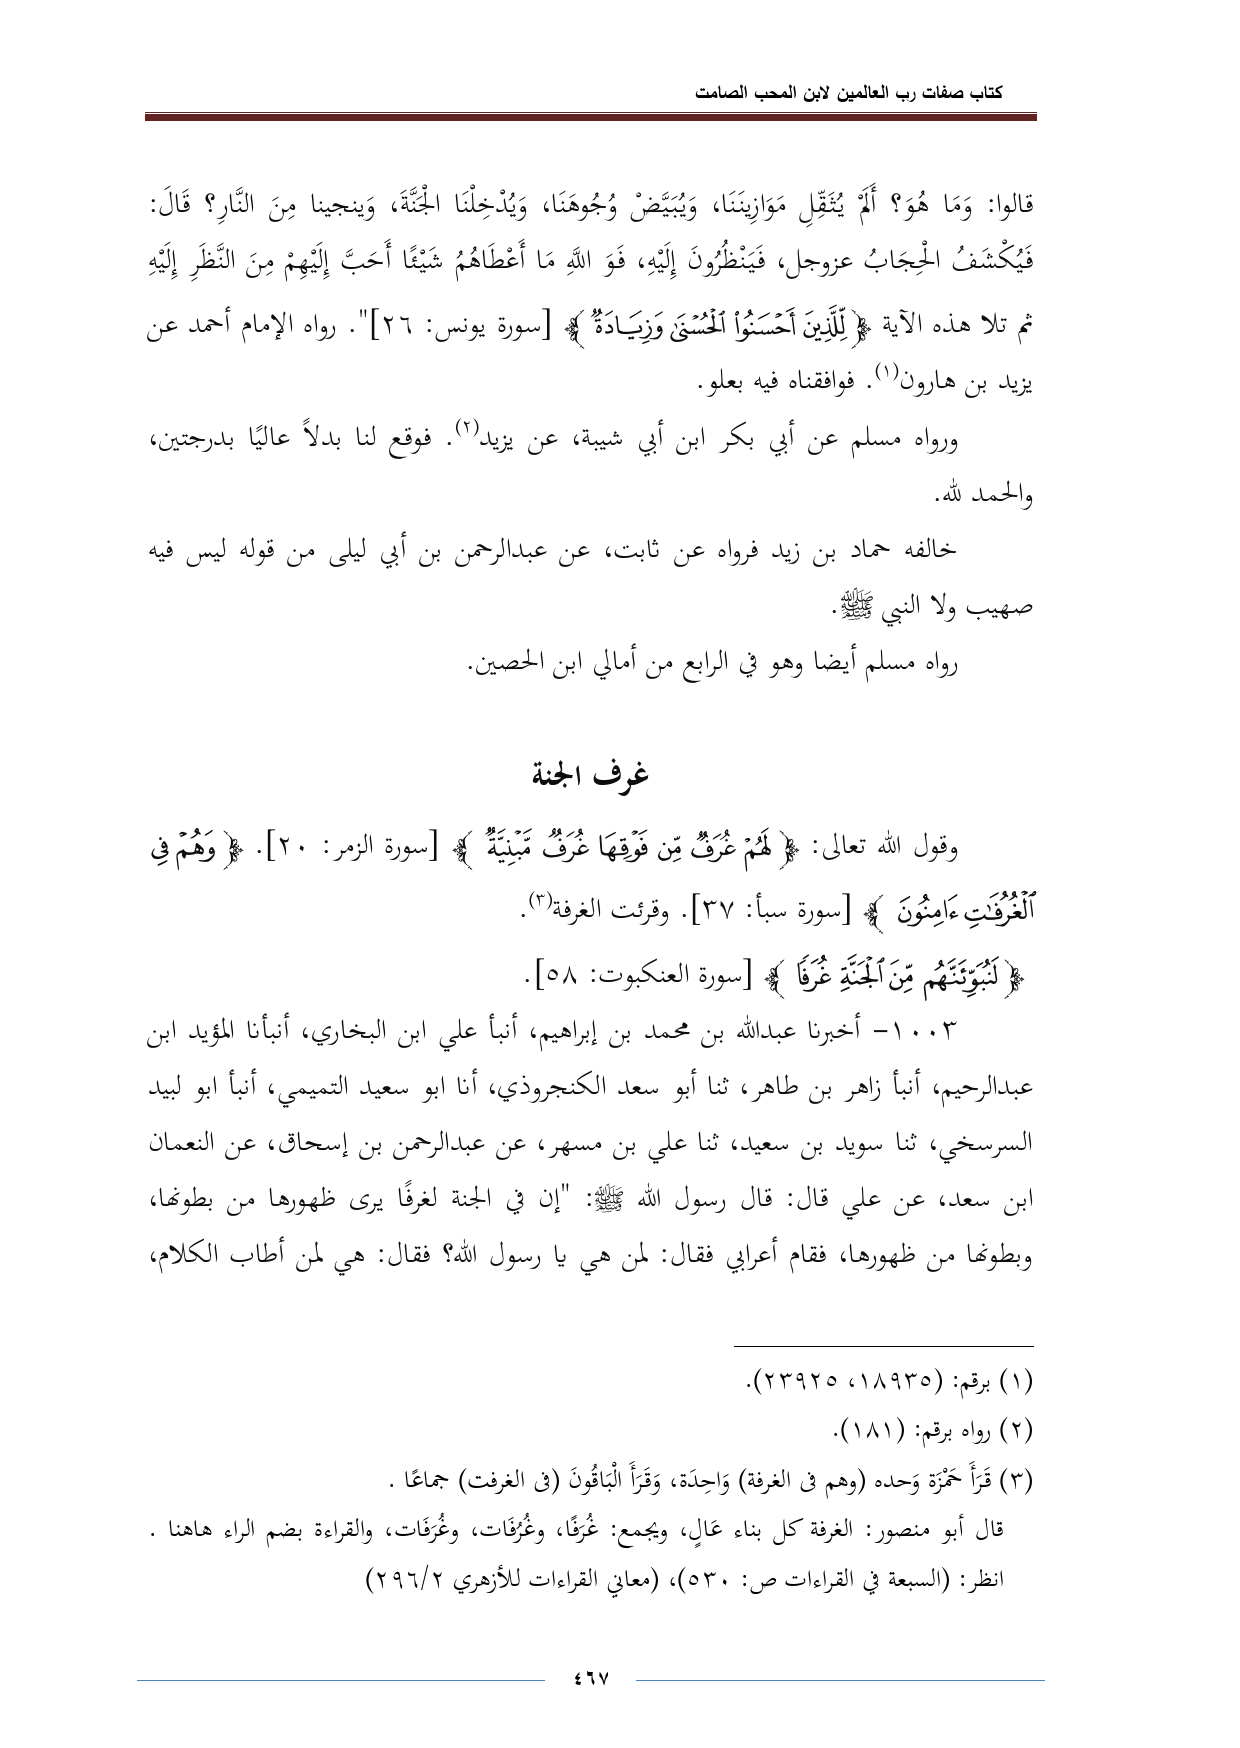 كتاب صفات رب العالمين لابن المحب الصامت
قالوا: وَمَا هُوَ؟ أَلَمْ يُثَقِّلِ مَوَازِينَنَا، وَيُبَيَّضْ وُجُوهَنَا، وَيُدْخِلْنَا الْجَنَّةَ، وَينجينا مِنَ النَّارِ؟ قَالَ:
فَيُكْشَفُ الْحِجَابُ عزوجل، فَيَنْظُرُونَ إِلَيْهِ، فَوَ اللَّهِ مَا أَعْطَاهُمُ شَيْئًا أَحَبَّ إِلَيْهِمْ مِنَ النَّظَرِ إِلَيْهِ
ثم تلا هذه الآية ﴿ لِّلَّذِينَ أَحۡسَنُواْ ٱلۡحُسۡنَىٰ وَزِيَادَةٞ ﴾ [سورة يونس: ٢٦]". رواه الإمام أحمد عن
يزيد بن هارون(١). فوافقناه فيه بعلو.
ورواه مسلم عن أبي بكر ابن أبي شيبة، عن يزيد(٢). فوقع لنا بدلاً عاليًا بدرجتين،
والحمد لله.
خالفه حماد بن زيد فرواه عن ثابت، عن عبدالرحمن بن أبي ليلى من قوله ليس فيه
صهيب ولا النبي ﷺ.
رواه مسلم أيضا وهو في الرابع من أمالي ابن الحصين.
غرف الجنة
وقول الله تعالى: ﴿ لَهُمۡ غُرَفٞ مِّن فَوۡقِهَا غُرَفٞ مَّبۡنِيَّةٞ ﴾ [سورة الزمر: ٢٠]. ﴿ وَهُمۡ فِي
ٱلۡغُرُفَٰتِ ءَامِنُونَ ﴾ [سورة سبأ: ٣٧]. وقرئت الغرفة(٣).
﴿ لَنُبَوِّئَنَّهُم مِّنَ ٱلۡجَنَّةِ غُرَفٗا ﴾ [سورة العنكبوت: ٥٨].
١٠٠٣- أخبرنا عبدالله بن محمد بن إبراهيم، أنبأ علي ابن البخاري، أنبأنا المؤيد ابن
عبدالرحيم، أنبأ زاهر بن طاهر، ثنا أبو سعد الكنجروذي، أنا ابو سعيد التميمي، أنبأ ابو لبيد
السرسخي، ثنا سويد بن سعيد، ثنا علي بن مسهر، عن عبدالرحمن بن إسحاق، عن النعمان
ابن سعد، عن علي قال: قال رسول الله ﷺ: "إن في الجنة لغرفًا يرى ظهورها من بطونها،
وبطونها من ظهورها، فقام أعرابي فقال: لمن هي يا رسول الله؟ فقال: هي لمن أطاب الكلام،
(١) برقم: (١٨٩٣٥، ٢٣٩٢٥).
(٢) رواه برقم: (١٨١).
(٣) قَرَأَ حَمْزَة وَحده (وهم فى الغرفة) وَاحِدَة، وَقَرَأَ الْبَاقُونَ (فى الغرفت) جماعًا .
قال أبو منصور: الغرفة كل بناء عَالٍ، ويجمع: غُرَفًا، وغُرُفَات، وغُرَفَات، والقراءة بضم الراء هاهنا .
انظر: (السبعة في القراءات ص: ٥٣٠)، (معاني القراءات للأزهري ٢٩٦/٢)
٤٦٧